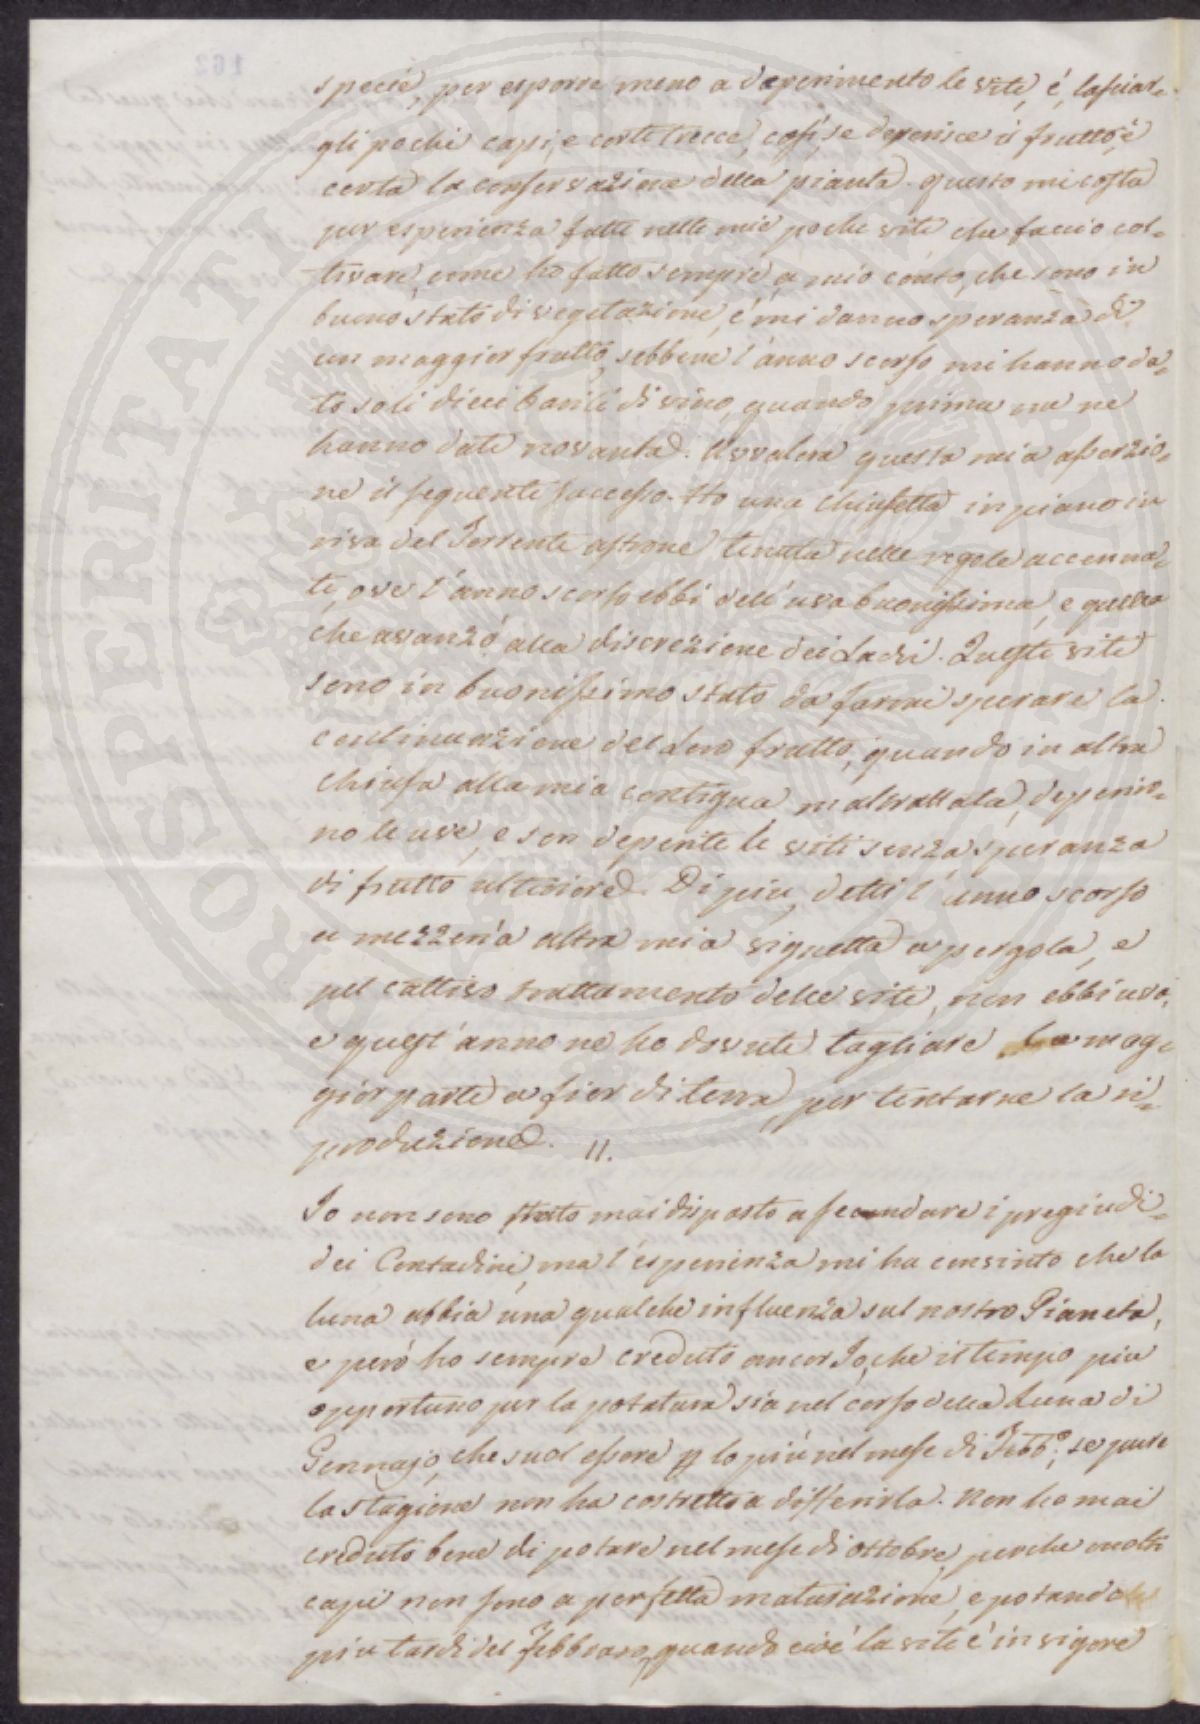 specie, per esporre meno a deperimento le vite, é, lasciar-
gli pochi capi, e corte trecce, cosí, se deperisce il frutto, è
certa la conservazione della pianta. Questo mi costa
per esperienza fatta nelle mie poche vite che faccio col-
tivare, come ho fatto sempre, a mio conto, che sono in
buono stato di vegetazione, é mi danno speranza di
un maggior frutto, sebbene l'anno scorso mi hanno da-
to soli dieci barili di vino, quando prima me ne
hanno dati novanta. Avvalera questa mia asserzio-
ne il seguente successo. Ho una chiusetta in piano in
riva del Torrente astrone tenuta nelle regole accenna-
te, ove l'anno scorso ebbi dell'uva buonissima, e quella
che avanzó alla discrezione dei Ladri. Queste vite
sono in buonissimo stato da farmi sperare la
continuazione del Loro frutto, quando in altra
chiusa alla mia contigua maltrattata, deperiro-
no le uve, e son deperite le viti senza speranza
di frutto ulteriore. Di piu, detti l'anno scorso
a mezzeria altra mia vignetta a pergola, e
pel cattivo trattamento delle vite, non ebbi uva,
e quest'anno ne ho dovute tagliare la mag-
gior parte a fior di terra, per tentarne la ri-
produzione.
11.
Io non sono stato mai disposto a secondare i pregiudi-
dei Contadini, ma l'esperienza mi ha convinto che la
luna abbia una qualche influenza sul nostro Pianeta,
e peró ho sempre creduto ancor Io, che il tempo piu
opportuno per la potatura sia nel corso della Luna di
Gennajo, che suol essere p lo piú nel mese di Febb.o, se pure
la stagione non ha costretto a differirla. Non ho mai
creduto bene di potare nel mese di ottobre, perche molti
capi non sono a perfetta maturazione, e potando
piu tardi del febbraro, quando cioé la vite é in vigore